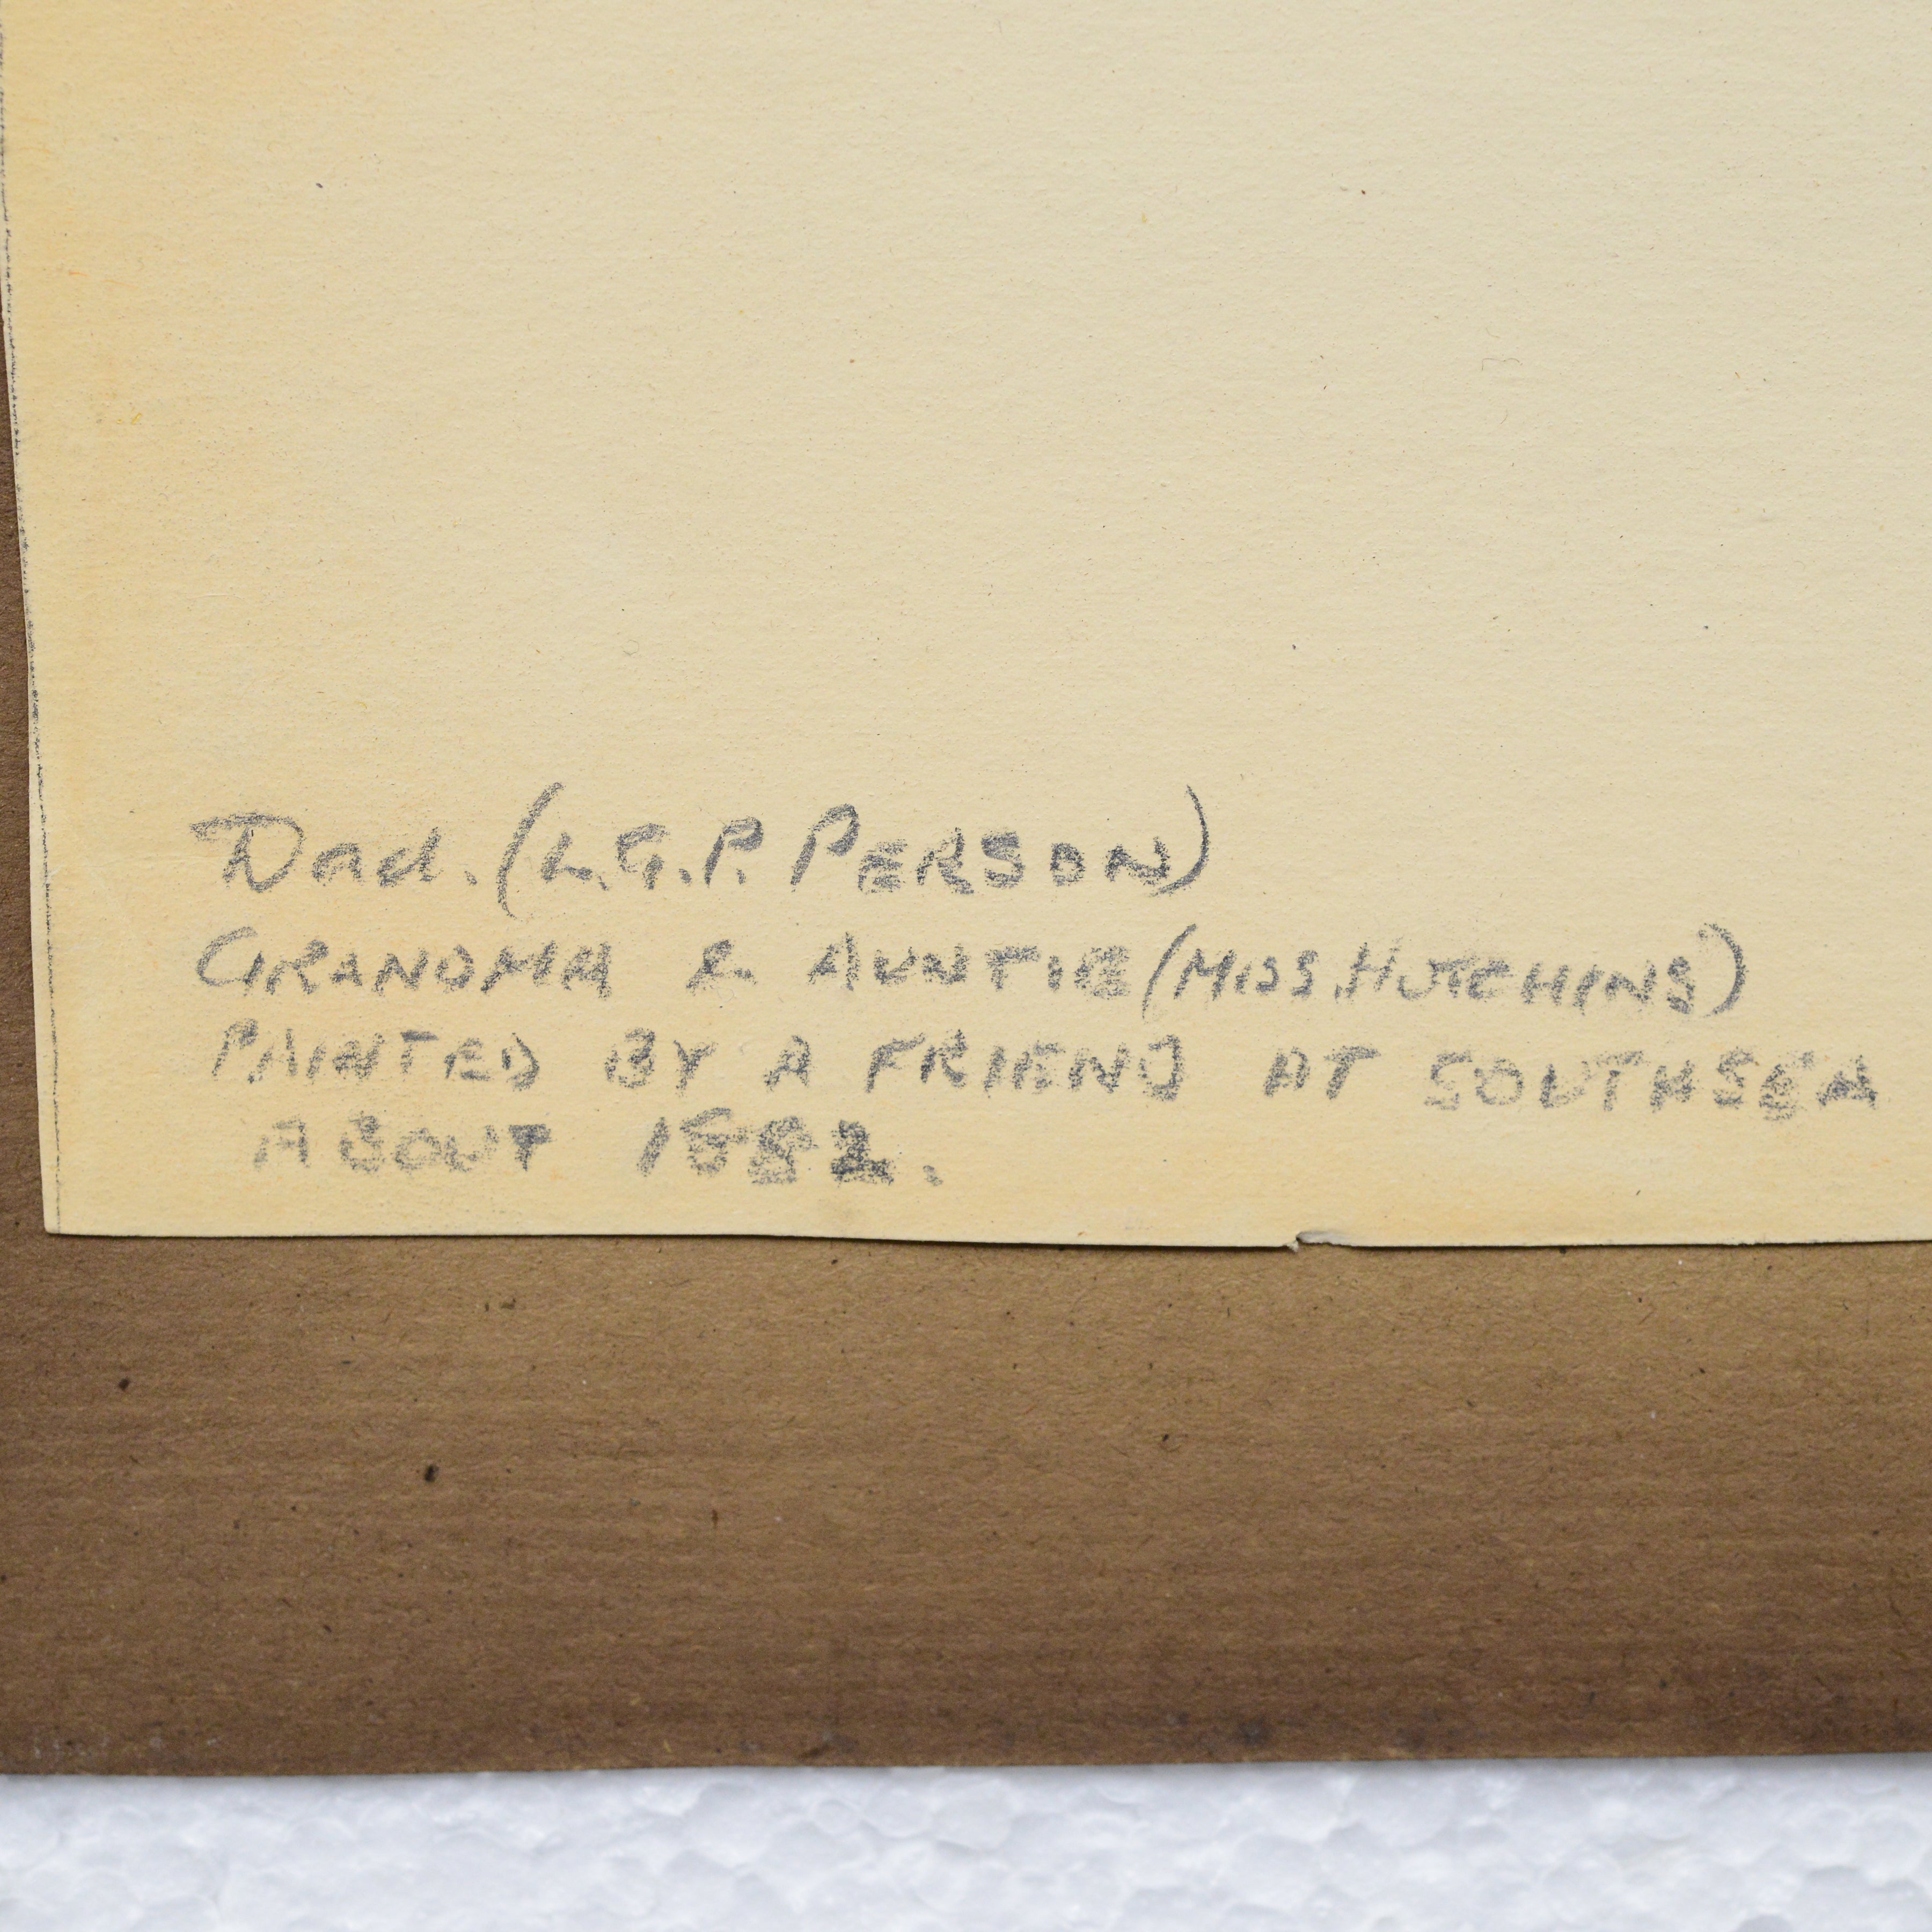 Dad. (L.G.P. PERSON)
GRANDMA & AUNTIE (MISS. HUTCHINS)
PAINTED BY A FRIEND AT SOUTHSEA
ABOUT 1882.